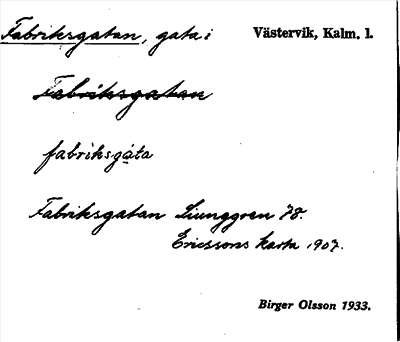 Fabriksgatan, gata i Västervik, Kalm. l.
Fabriksgatan
fabrìksgáta
Fabriksgatan Ljunggren 78.
Ericssons karta 1907.
Birger Olsson 1933.